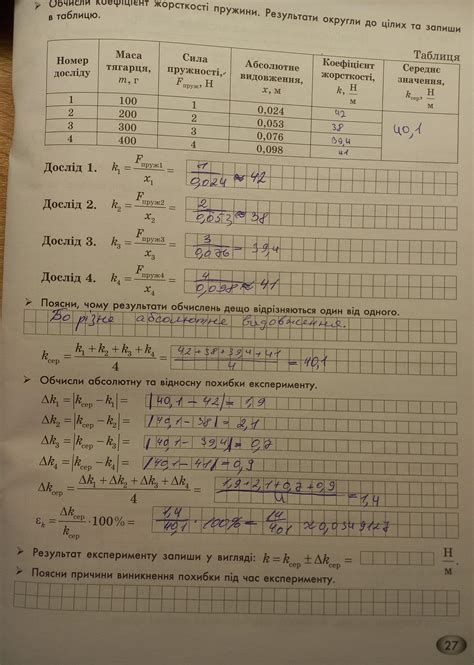 ➢ Обчисли коефіцієнт жорсткості пружини. Результати округли до цілих та запиши
в таблицю.
Таблиця
Номер досліду | Маса тягарця, m, г | Сила пружності, Fпруж, Н | Абсолютне видовження, x, м | Коефіцієнт жорсткості, k, Н/м | Середнє значення, kсер, Н/м
1 | 100 | 1 | 0,024 | 42 | 40,1
2 | 200 | 2 | 0,053 | 38
3 | 300 | 3 | 0,076 | 39,4
4 | 400 | 4 | 0,098 | 41
Дослід 1. k₁ = Fпруж1/x₁ = 1/0,024 ≈ 42
Дослід 2. k₂ = Fпруж2/x₂ = 2/0,053 ≈ 38
Дослід 3. k₃ = Fпруж3/x₃ = 3/0,076 = 39,4
Дослід 4. k₄ = Fпруж4/x₄ = 4/0,098 ≈ 41
➢ Поясни, чому результати обчислень дещо відрізняються один від одного.
Бо різне абсолютне видовження.
kсер = (k₁ + k₂ + k₃ + k₄)/4 = (42+38+39,4+41)/4 = 40,1
➢ Обчисли абсолютну та відносну похибки експерименту.
Δk₁ = |kсер − k₁| = |40,1 − 42| = 1,9
Δk₂ = |kсер − k₂| = |40,1 − 38| = 2,1
Δk₃ = |kсер − k₃| = |40,1 − 39,4| = 0,7
Δk₄ = |kсер − k₄| = |40,1 − 41| = 0,9
Δkсер = (Δk₁ + Δk₂ + Δk₃ + Δk₄)/4 = (1,9+2,1+0,7+0,9)/4 = 1,4
εk = Δkсер/kсер · 100% = 1,4/40,1 · 100% = 14/401 ≈ 0,0349127
➢ Результат експерименту запиши у вигляді: k = kсер ± Δkсер = Н/м.
➢ Поясни причини виникнення похибки під час експерименту.
27